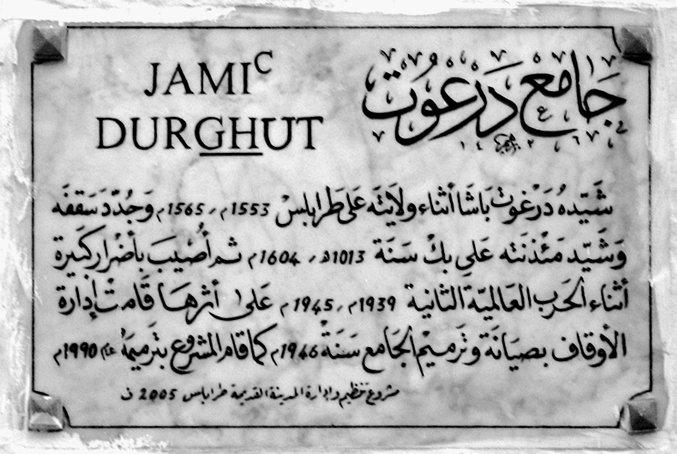 JAMIᶜ
DURGHUT
جَامع دَرْغُوت
شَيّدهُ دَرْغوت بَاشَا أثناء ولاَيَته عَلى طَرابلسْ 1553م، 1565م وَجُدّدَ سَقفَه
وَشَيّد مَئْذنَته عَلي بكْ سَنَة 1013هـ، 1604م ثم أُصُيبَ بأضْرار كَبيرة
أثناء الحَرب العَالميّة الثانية 1939م، 1945م، عَلى أثرهَا قَامتْ إدَارة
الأوقاف بصيَانَة وتَرميْم الجَامع سَنَة 1946م كمَا قام المشروع بتَرميمهُ عام 1990م
مشروع تنظيم وإدارة المدينة القديمة طرابلس 2005 ف